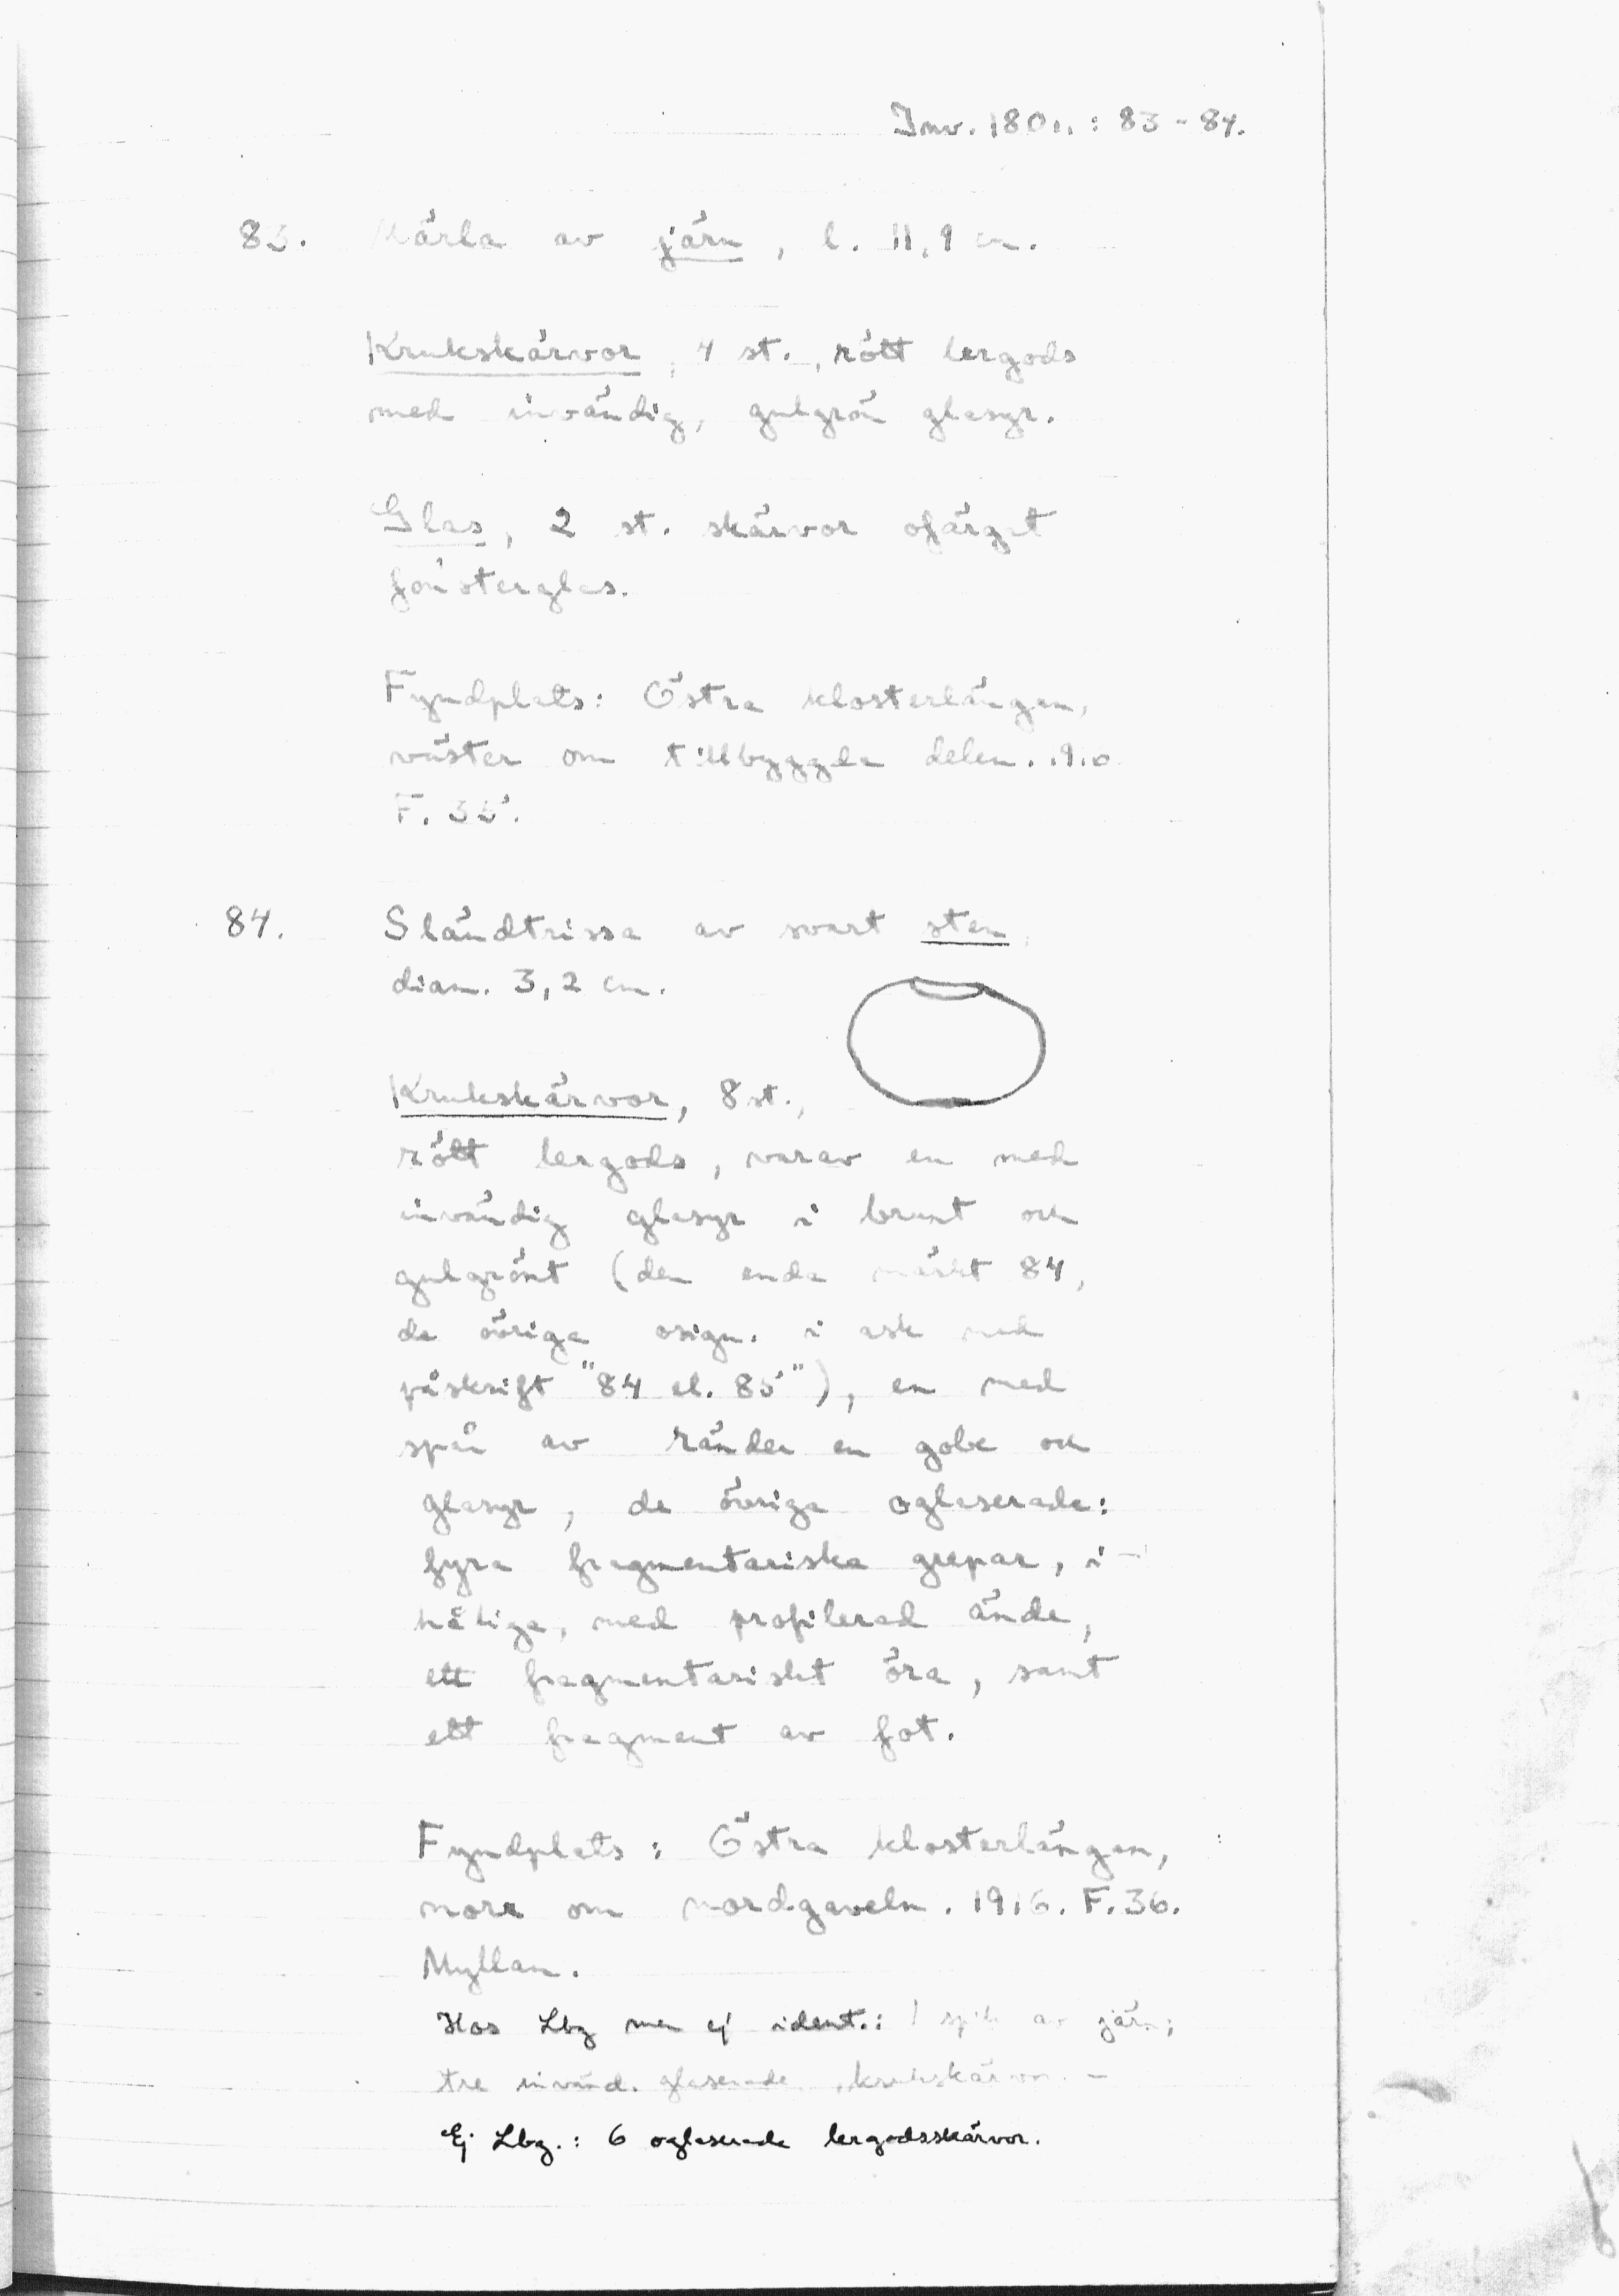 Inv. 180..: 83-84.
83. Märla av järn, l. 11,9 cm.
Krukskärvor, 4 st., rött lergods
med invändig, gulgrön glasyr.
Glas, 2 st. skärvor ofärgat
fönsterglas.
Fyndplats: Östra klosterlängan,
väster om tillbyggda delen.
F. 35.
84. Sländtrissa av svart sten,
diam. 3,2 cm.
Krukskärvor, 8 st.,
rött lergods, varav en med
invändig glasyr i brunt och
gulgrönt (den enda märkt 84,
de övriga osign. i ask med
påskrift "84 el. 85"), en med
spår av ränder en gobe och
glasyr, de övriga oglaserade:
fyra fragmentariska grepar, i-
håliga, med profilerad ände,
ett fragmentariskt öra, samt
ett fragment av fot.
Fyndplats: Östra klosterlängan,
norr om nordgaveln. 1916. F. 36.
Myllan.
Hos Lbg men ej ident.: 1 spik av järn;
tre invänd. glaserade krukskärvor. -
Ej Lbg.: 6 oglaserade lergodsskärvor.